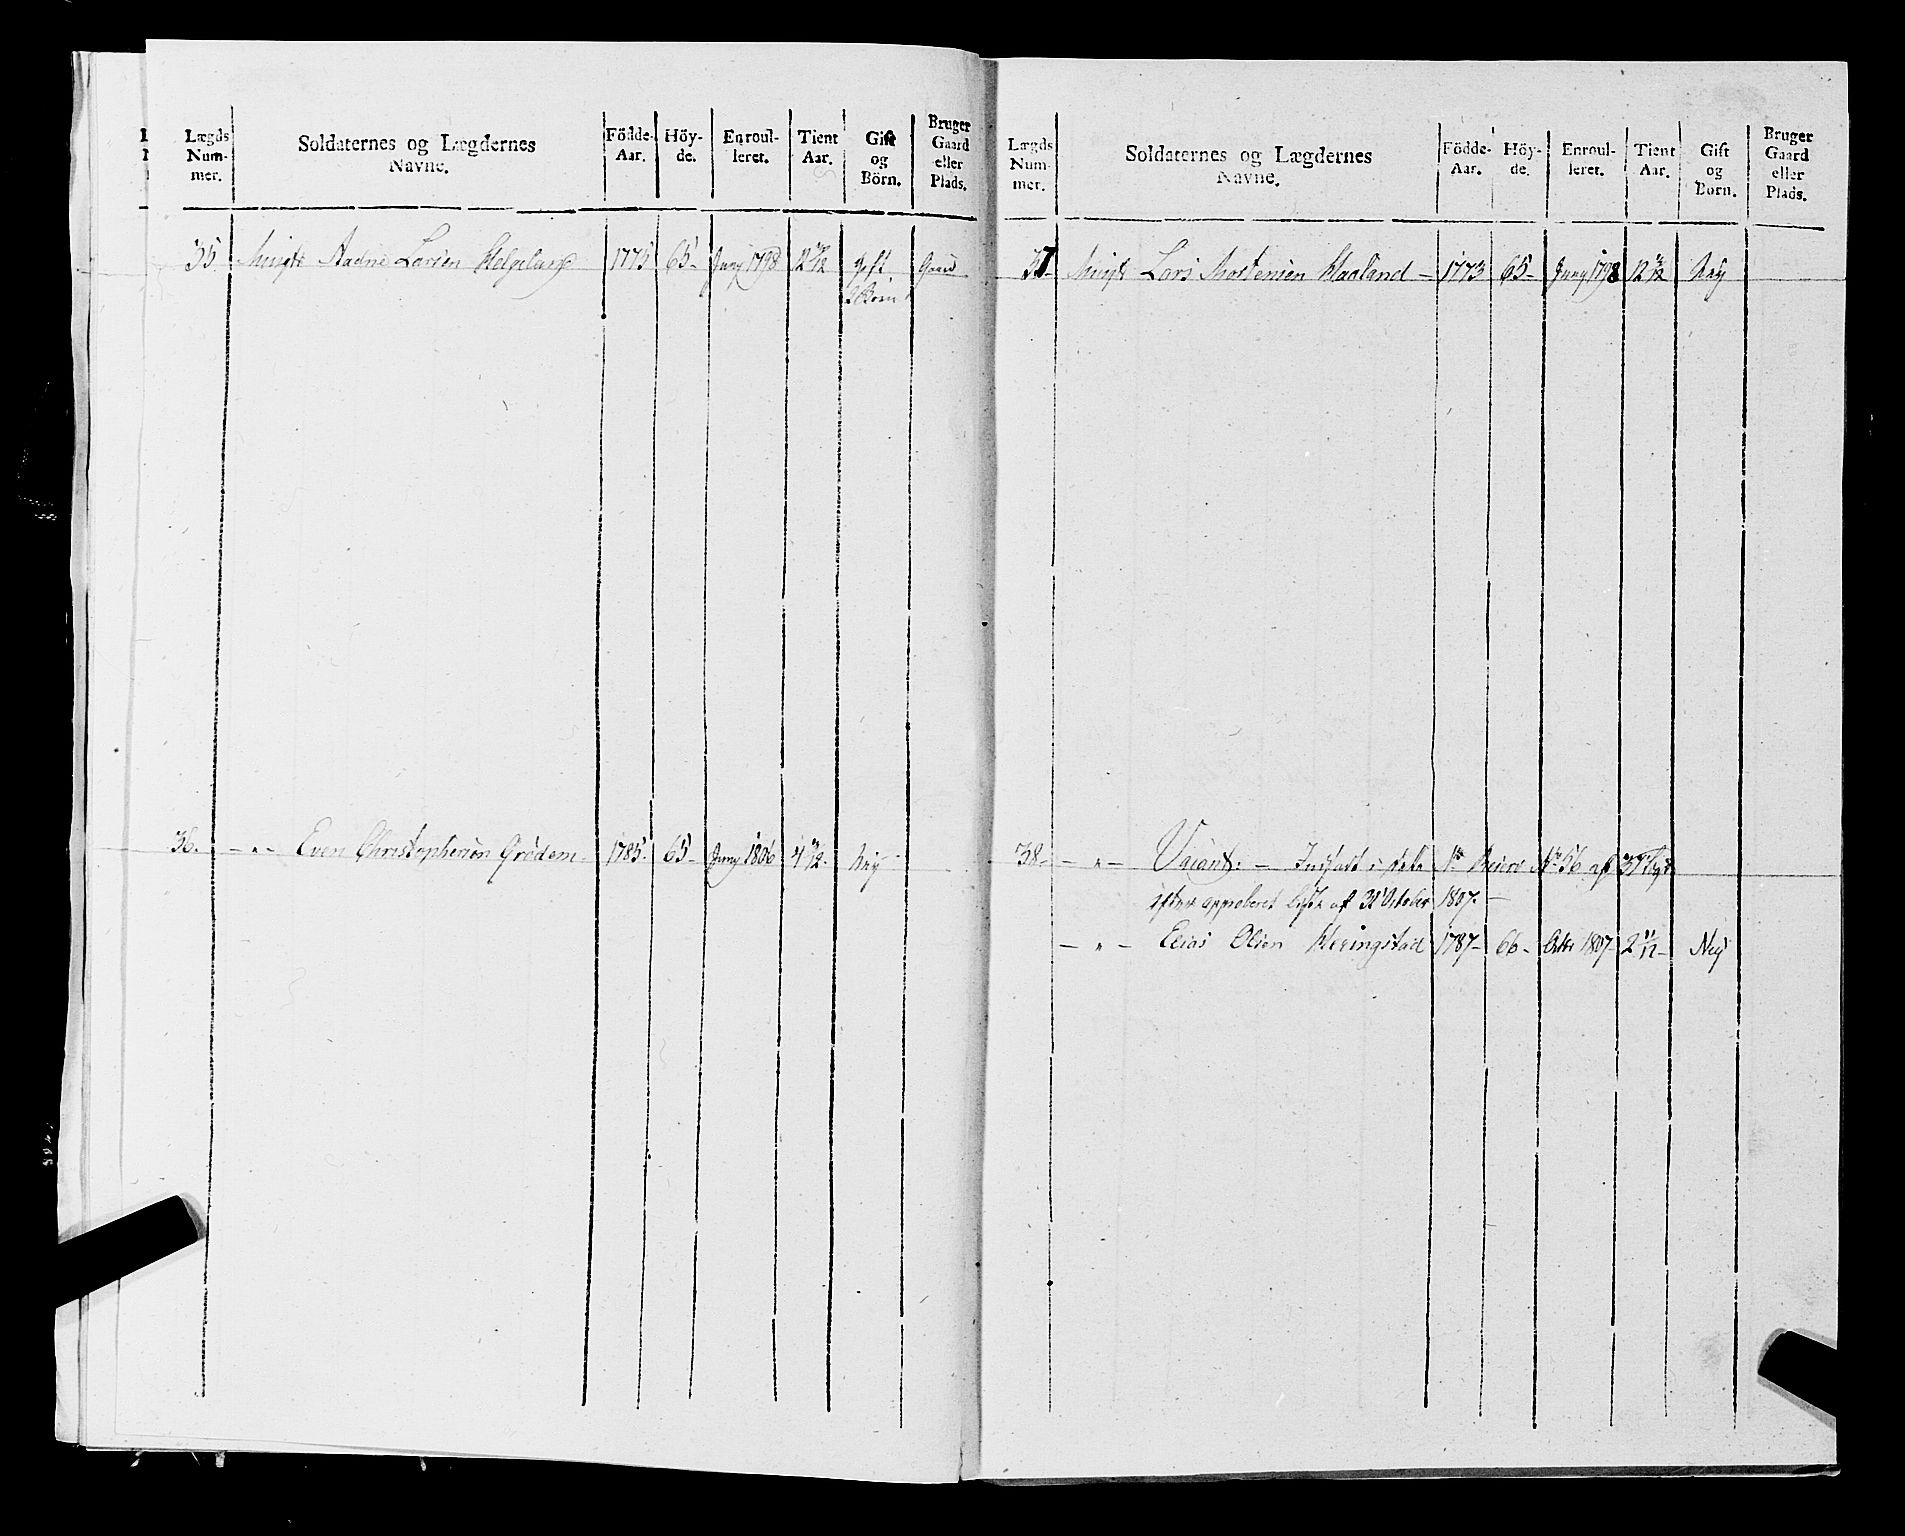 Lægds Num- mer.
Soldaternes og Lægdernes Navne.
Födde- Aar.
Höy- de.
Enroul- leret.
Tient Aar.
Gift og Börn.
Bruger Gaard eller Plads.
35 Aadne Larsen Helgeland 1775 65- Juny 1798 12 Gift Gaard
2 Börn
36. - " - Even Christophersön Grödem 1785- 65- Juny 1806 4 Ney
Lægds Num- mer.
Soldaternes og Lægdernes Navne.
Födde- Aar.
Höy- de.
Enroul- leret.
Tient Aar.
Gift og Börn.
Bruger Gaard eller Plads.
37 Lars Mortensen Haaland - 1773 65- Juny 1798 12 Ney
38- - " - Vacant: - Indsadt i dets No 56 af
efter approberet liste af 31 October 1807-
- " - Elias Olsen Heringstad 1787- 66- Octbr 1807- 2 11/12- Ney